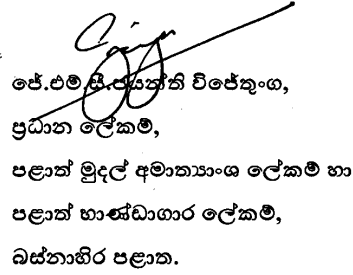 ජේ.එම්.සී.ජයන්ති විජේතුංග,
ප්‍රධාන ලේකම්,
පළාත් මුදල් අමාත්‍යාංශ ලේකම් හා
පළාත් භාණ්ඩාගාර ලේකම්,
බස්නාහිර පළාත.